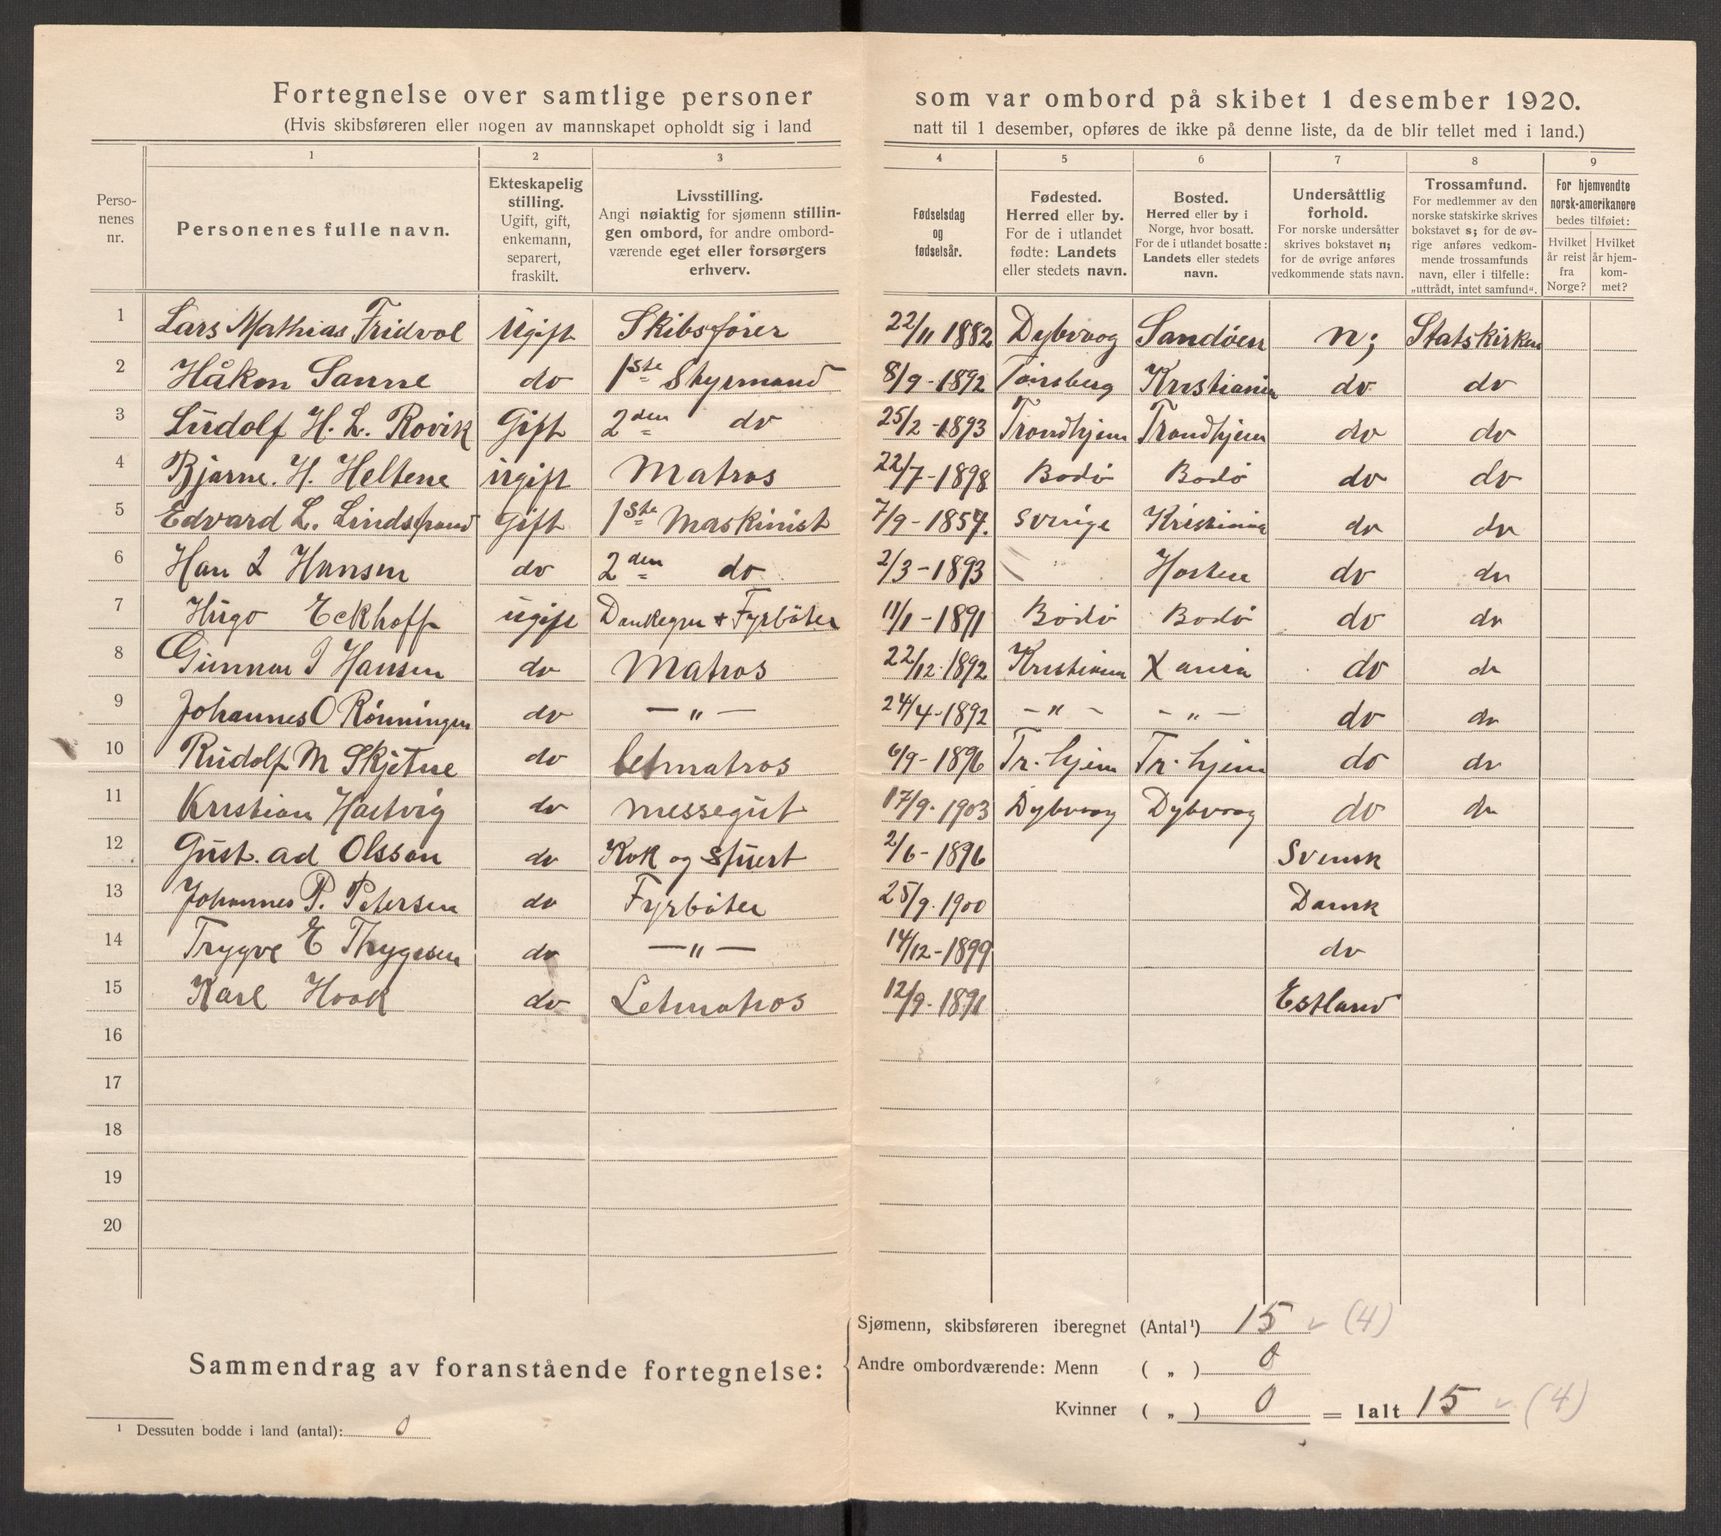 Fortegnelse over samtlige personer som var ombord på skibet 1 desember 1920.
(Hvis skibsføreren eller nogen av mannskapet opholdt sig i land natt til 1 desember, opføres de ikke på denne liste, da de blir tellet med i land.)
1 2 3 4 5 6 7 8 9
Personenes nr.
Personenes fulle navn.
Ekteskapelig stilling. Ugift, gift, enkemann, separert, fraskilt.
Livsstilling. Angi nøiaktig for sjømenn stillingen ombord, for andre ombordværende eget eller forsørgers erhverv.
Fødselsdag og fødselsår.
Fødested. Herred eller by. For de i utlandet fødte: Landets eller stedets navn.
Bosted. Herred eller by i Norge, hvor bosatt. For de i utlandet bosatte: Landets eller stedets navn.
Undersåttlig forhold. For norske undersåtter skrives bokstavet n; for de øvrige anføres vedkommende stats navn.
Trossamfund. For medlemmer av den norske statskirke skrives bokstavet s; for de øvrige anføres vedkommende trossamfunds navn, eller i tilfelle: „uttrådt, intet samfund".
For hjemvendte norsk-amerikanere bedes tilføiet: Hvilket år reist fra Norge? Hvilket år hjemkommet?
1 Lars Mathias Fridvol Ugift Skibsfører 22/11 1882 Dybvaag Sandøen n; Statskirken
2 Håkon Sanne do 1ste Styrmand 8/9-1892 Tönsberg Kristiania do do
3 Ludolf H. L. Rovik Gift 2den do 25/2-1893 Trondhjem Trondhjem do do
4 Bjarne. H. Heltene ugift Matros 22/7-1898 Bodö Bodö do do
5 Edvard L. Lindstrand Gift 1ste Maskinist 7/9-1857. Sverige Kristiania do do
6 Han L Hansen do 2den do 2/3-1893 " Horten do do
7 Hugo Eckhoff ugift Donkeym + Fyrböter 11/1-1891 Bodö Bodö do do
8 Gunnar J Hansen do Matros 22/12-1892 Kristiania Xania do do
9 Johannes O Rönningen do —„— 24/4-1892 -„- -„- do do
10 Rudolf M Skjetne do Letmatros 6/9-1896 Tr.hjem Tr.hjem do do
11 Kristian Hartvig do messegut 17/9-1903 Dybvaag Dybvaag do do
12 Gust. ad Olsson do Kok og Stuert 2/6-1896 Svensk
13 Johannes P. Petersen do Fyrböter 25/9-1900 Dansk
14 Trygve E Thygesen do —„— 14/12-1899 do
15 Karl Hook do Letmatros 12/9-1891 Estland
16
17
18
19
20
Sammendrag av foranstående fortegnelse:
Sjømenn, skibsføreren iberegnet (Antal¹) 15 (4)
Andre ombordværende: Menn ( „ ) 0
Kvinner ( „ ) 0 = Ialt 15 (4)
¹ Dessuten bodde i land (antal): 0